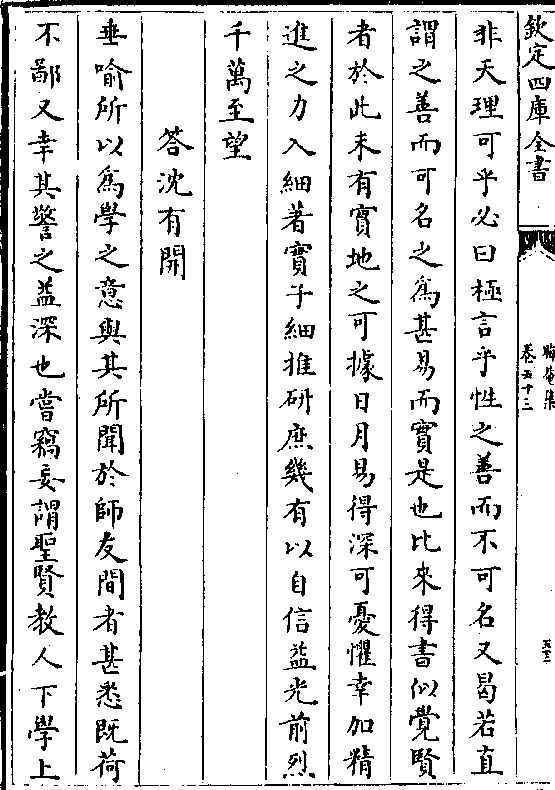 欽定四庫全書
晦菴集
卷五十三
非天理可乎必曰極言乎性之善而不可名又曷若直
謂之善而可名之爲甚易而實是也比來得書似覺賢
者於此未有實地之可據日月易得深可憂懼幸加精
進之力入細著實子細推研庶幾有以自信益光前烈
千萬至望
答沈有開
垂喻所以爲學之意與其所聞於師友間者甚悉既荷
不鄙又幸其警之益深也嘗竊妄謂聖賢教人下學上